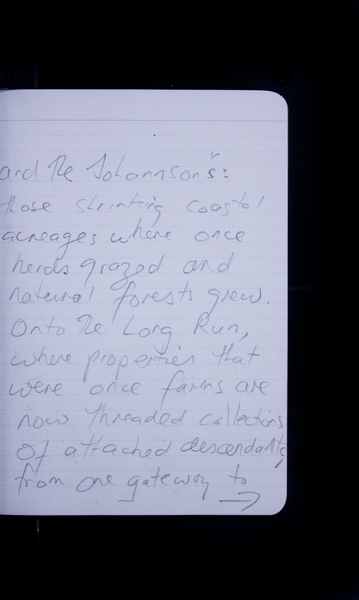 and the Johannson's:
those shrinking coastal
acreages where once
herds grazed and
natural forests grew.
Onto the Long Run,
where properties that
were once farms are
now threaded collections
of attached descendants,
from one gateway to
→